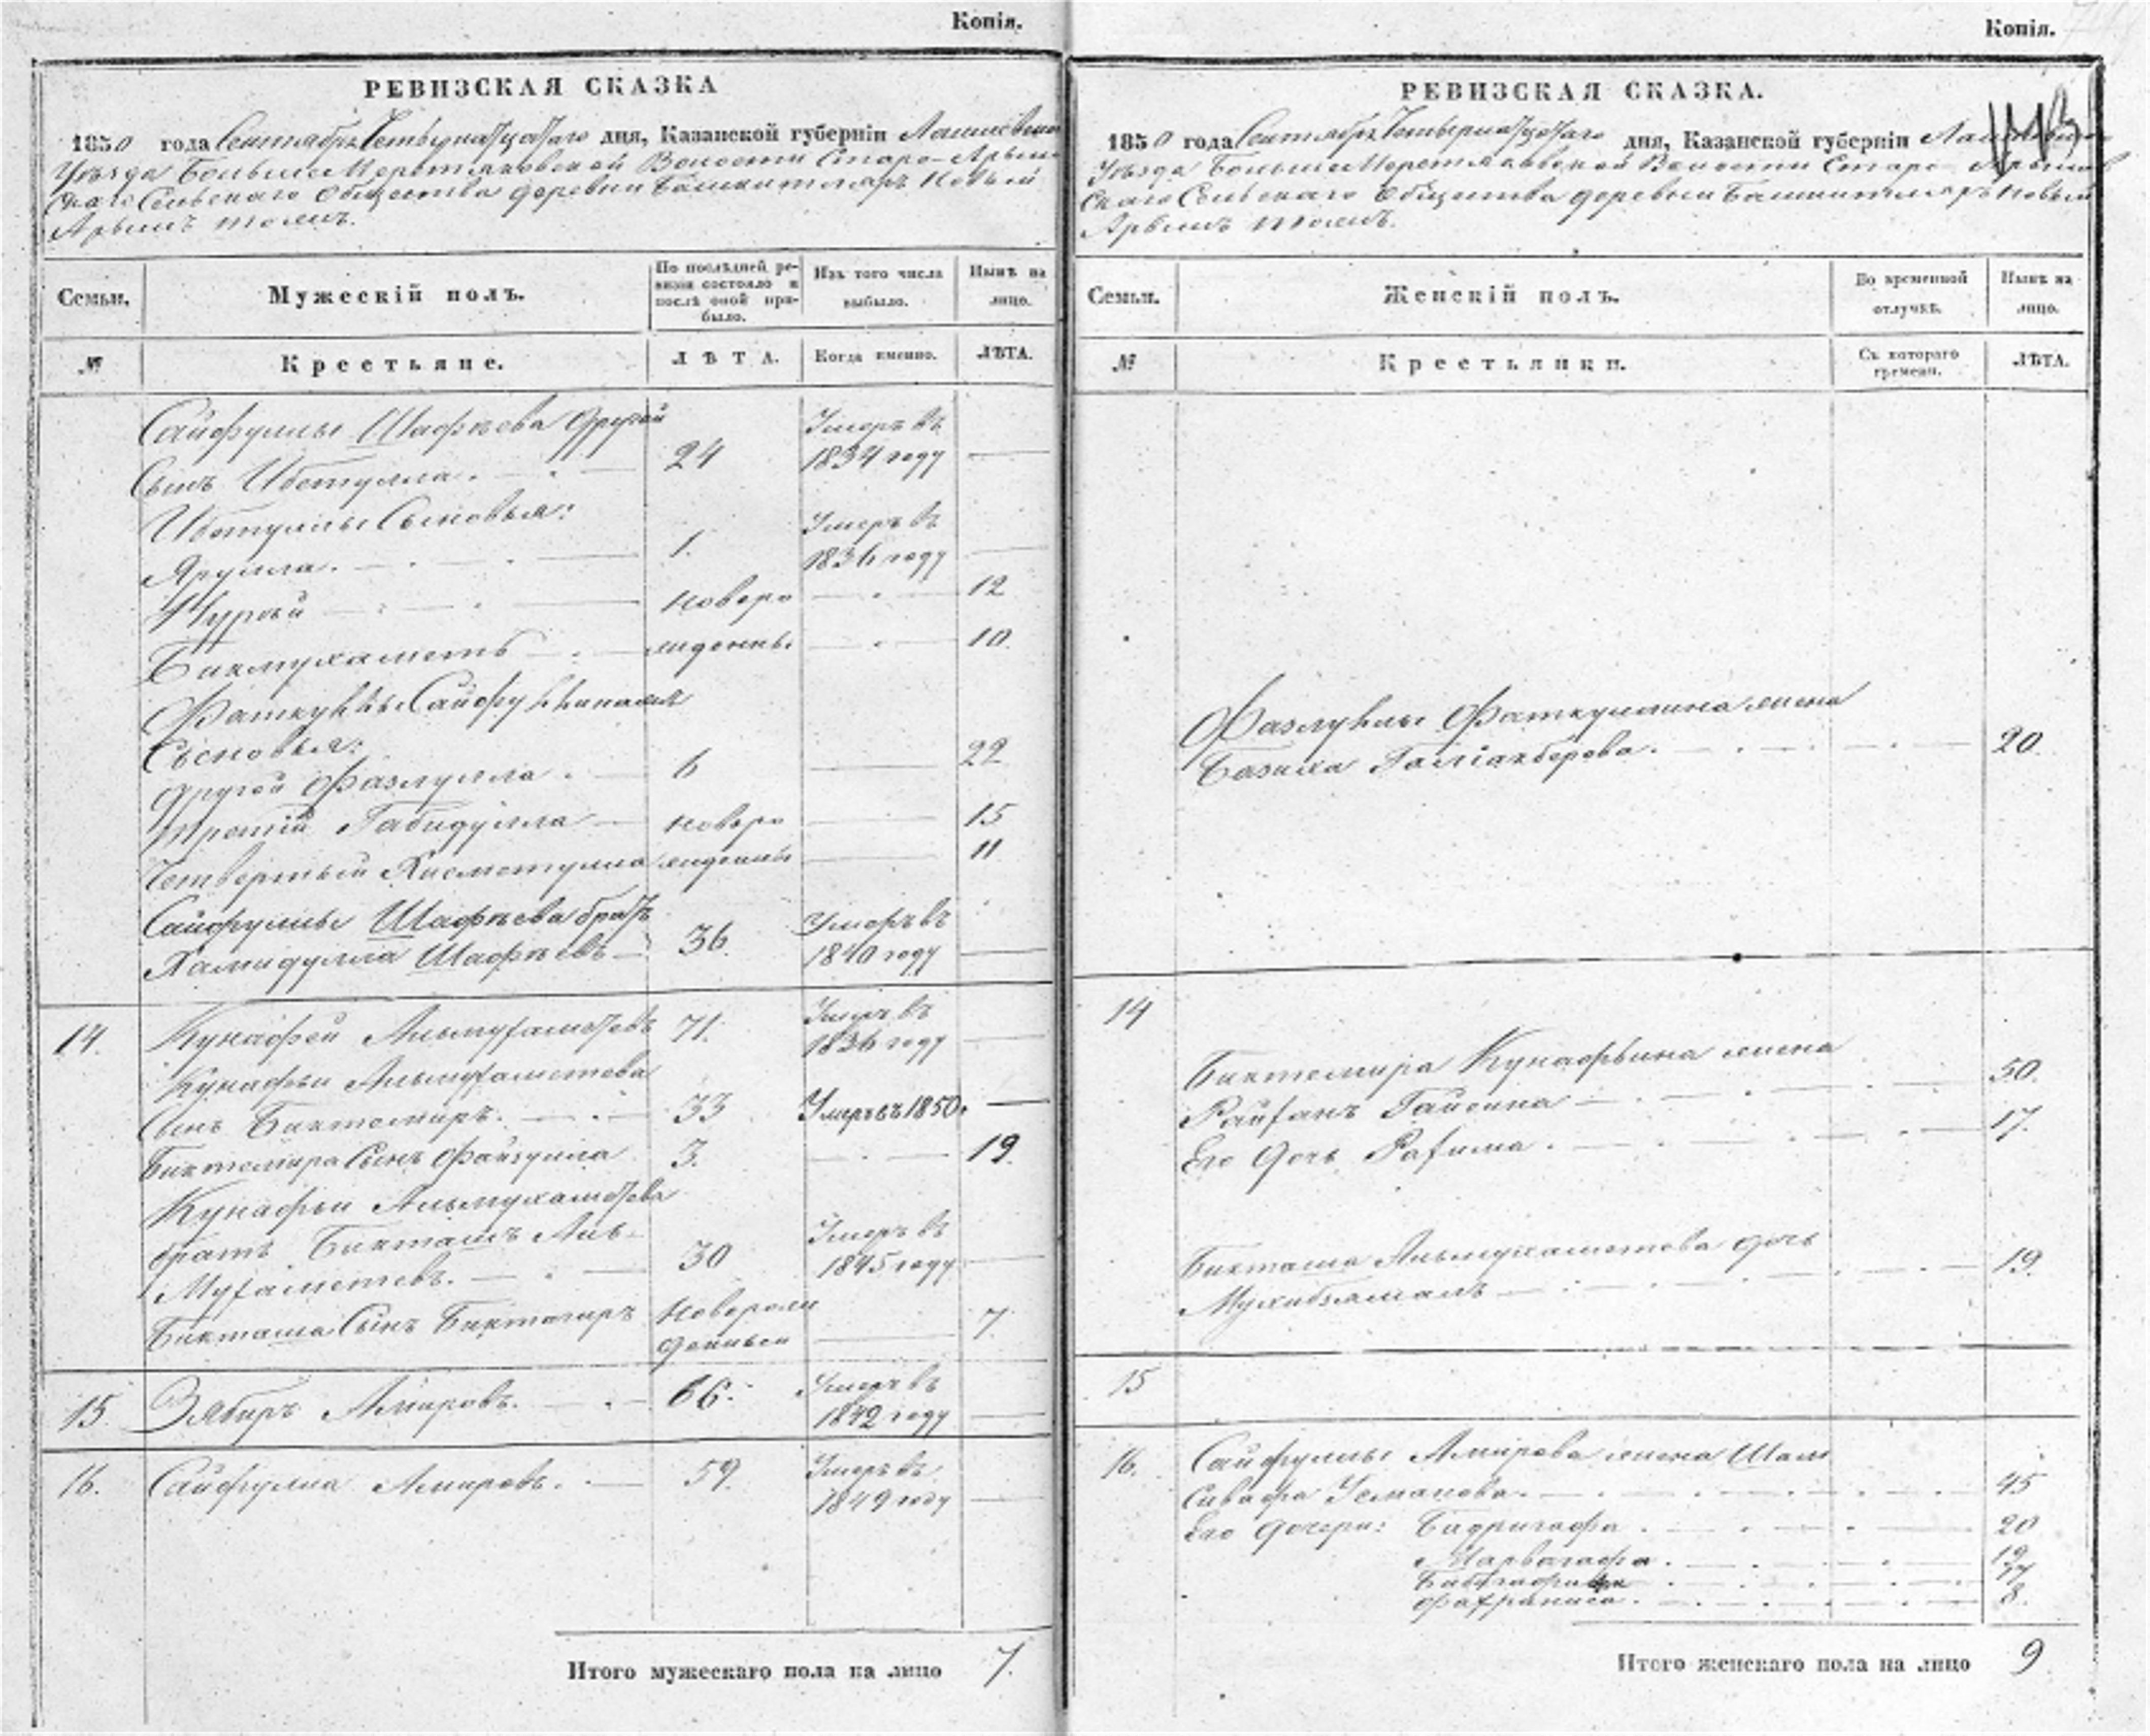 Копія.
РЕВИЗСКАЯ СКАЗКА
1850 года Сентября Четвернатцатаго дня, Казанской губерніи Лаишевскаго
Уѣзда Больше Меретяковской Волости Старо-Арыш
скаго Сельскаго Общества деревни Башкитляръ Новый
Арышъ тожъ.
Семьи. Мужескій полъ. По послѣдней ревизіи состояло и послѣ оной прибыло. Изъ того числа выбыло. Нынѣ на лицо.
№ Крестьяне. ЛѢТА. Когда именно. ЛѢТА.
Сайфуллы Шафѣева другой
Сынъ Ибетулла. 24 Умеръ въ 1834 году —
Ибетуллы Сыновья:
Ярулла. 1. Умеръ въ 1836 году —
Нурей новоро — 12
Бикмухаметъ жденны. — 10
Фаткуллы Сайфуллина
Сыновья:
другой Фазлулла. 6 — 22
третій Габидулла новоро — 15
Четвертый Хисметулла жденны — 11
Сайфуллы Шафѣева братъ
Хамидулла Шафѣевъ 36. Умеръ въ 1840 году —
14. Кунафей Альмухаметевъ 71. Умеръ въ 1836 году —
Кунафеи Альмухаметева
Сынъ Биктемиръ. 33 Умеръ въ 1850. —
Биктемира Сынъ Файзулла 3. — 19.
Кунафеи Альмухаметева
братъ Бикташъ Аль-
Мухаметевъ. 30 Умеръ въ 1845 году —
Бикташа Сынъ Биктагиръ Новорож
денный — 7.
15. Зябиръ Амировъ. 66. Умеръ въ 1842 году —
16. Сайфулла Амировъ. 59. Умеръ въ 1849 году —
Итого мужескаго пола на лицо 7.
Копія.
РЕВИЗСКАЯ СКАЗКА.
1850 года Сентября Четвернатцатаго дня, Казанской губерніи Лаишевскаго
Уѣзда Больше Меретяковской Волости Старо Арыш
скаго Сельскаго Общества деревни Башкитляръ Новый
Арышъ тожъ.
Семьи. Женскій полъ. Во временной отлучкѣ. Нынѣ на лицо.
№ Крестьянки. Съ котораго времени. ЛѢТА.
Фазлуллы Фаткуллина жена
Базиха Галіакберова. 20.
14
Биктемира Кунафьина жена
Райханъ Гайсина 50.
Его дочь Рахима. 17.
Бикташа Альмухаметева дочь
Мухибзямалъ 19.
15
16. Сайфуллы Амирова жена Шам
сивафа Усманова. 45
Его дочери: Бадригафа. 20
Марвагафа. 19
17
Фахраниса. 8.
Итого женскаго пола на лицо 9